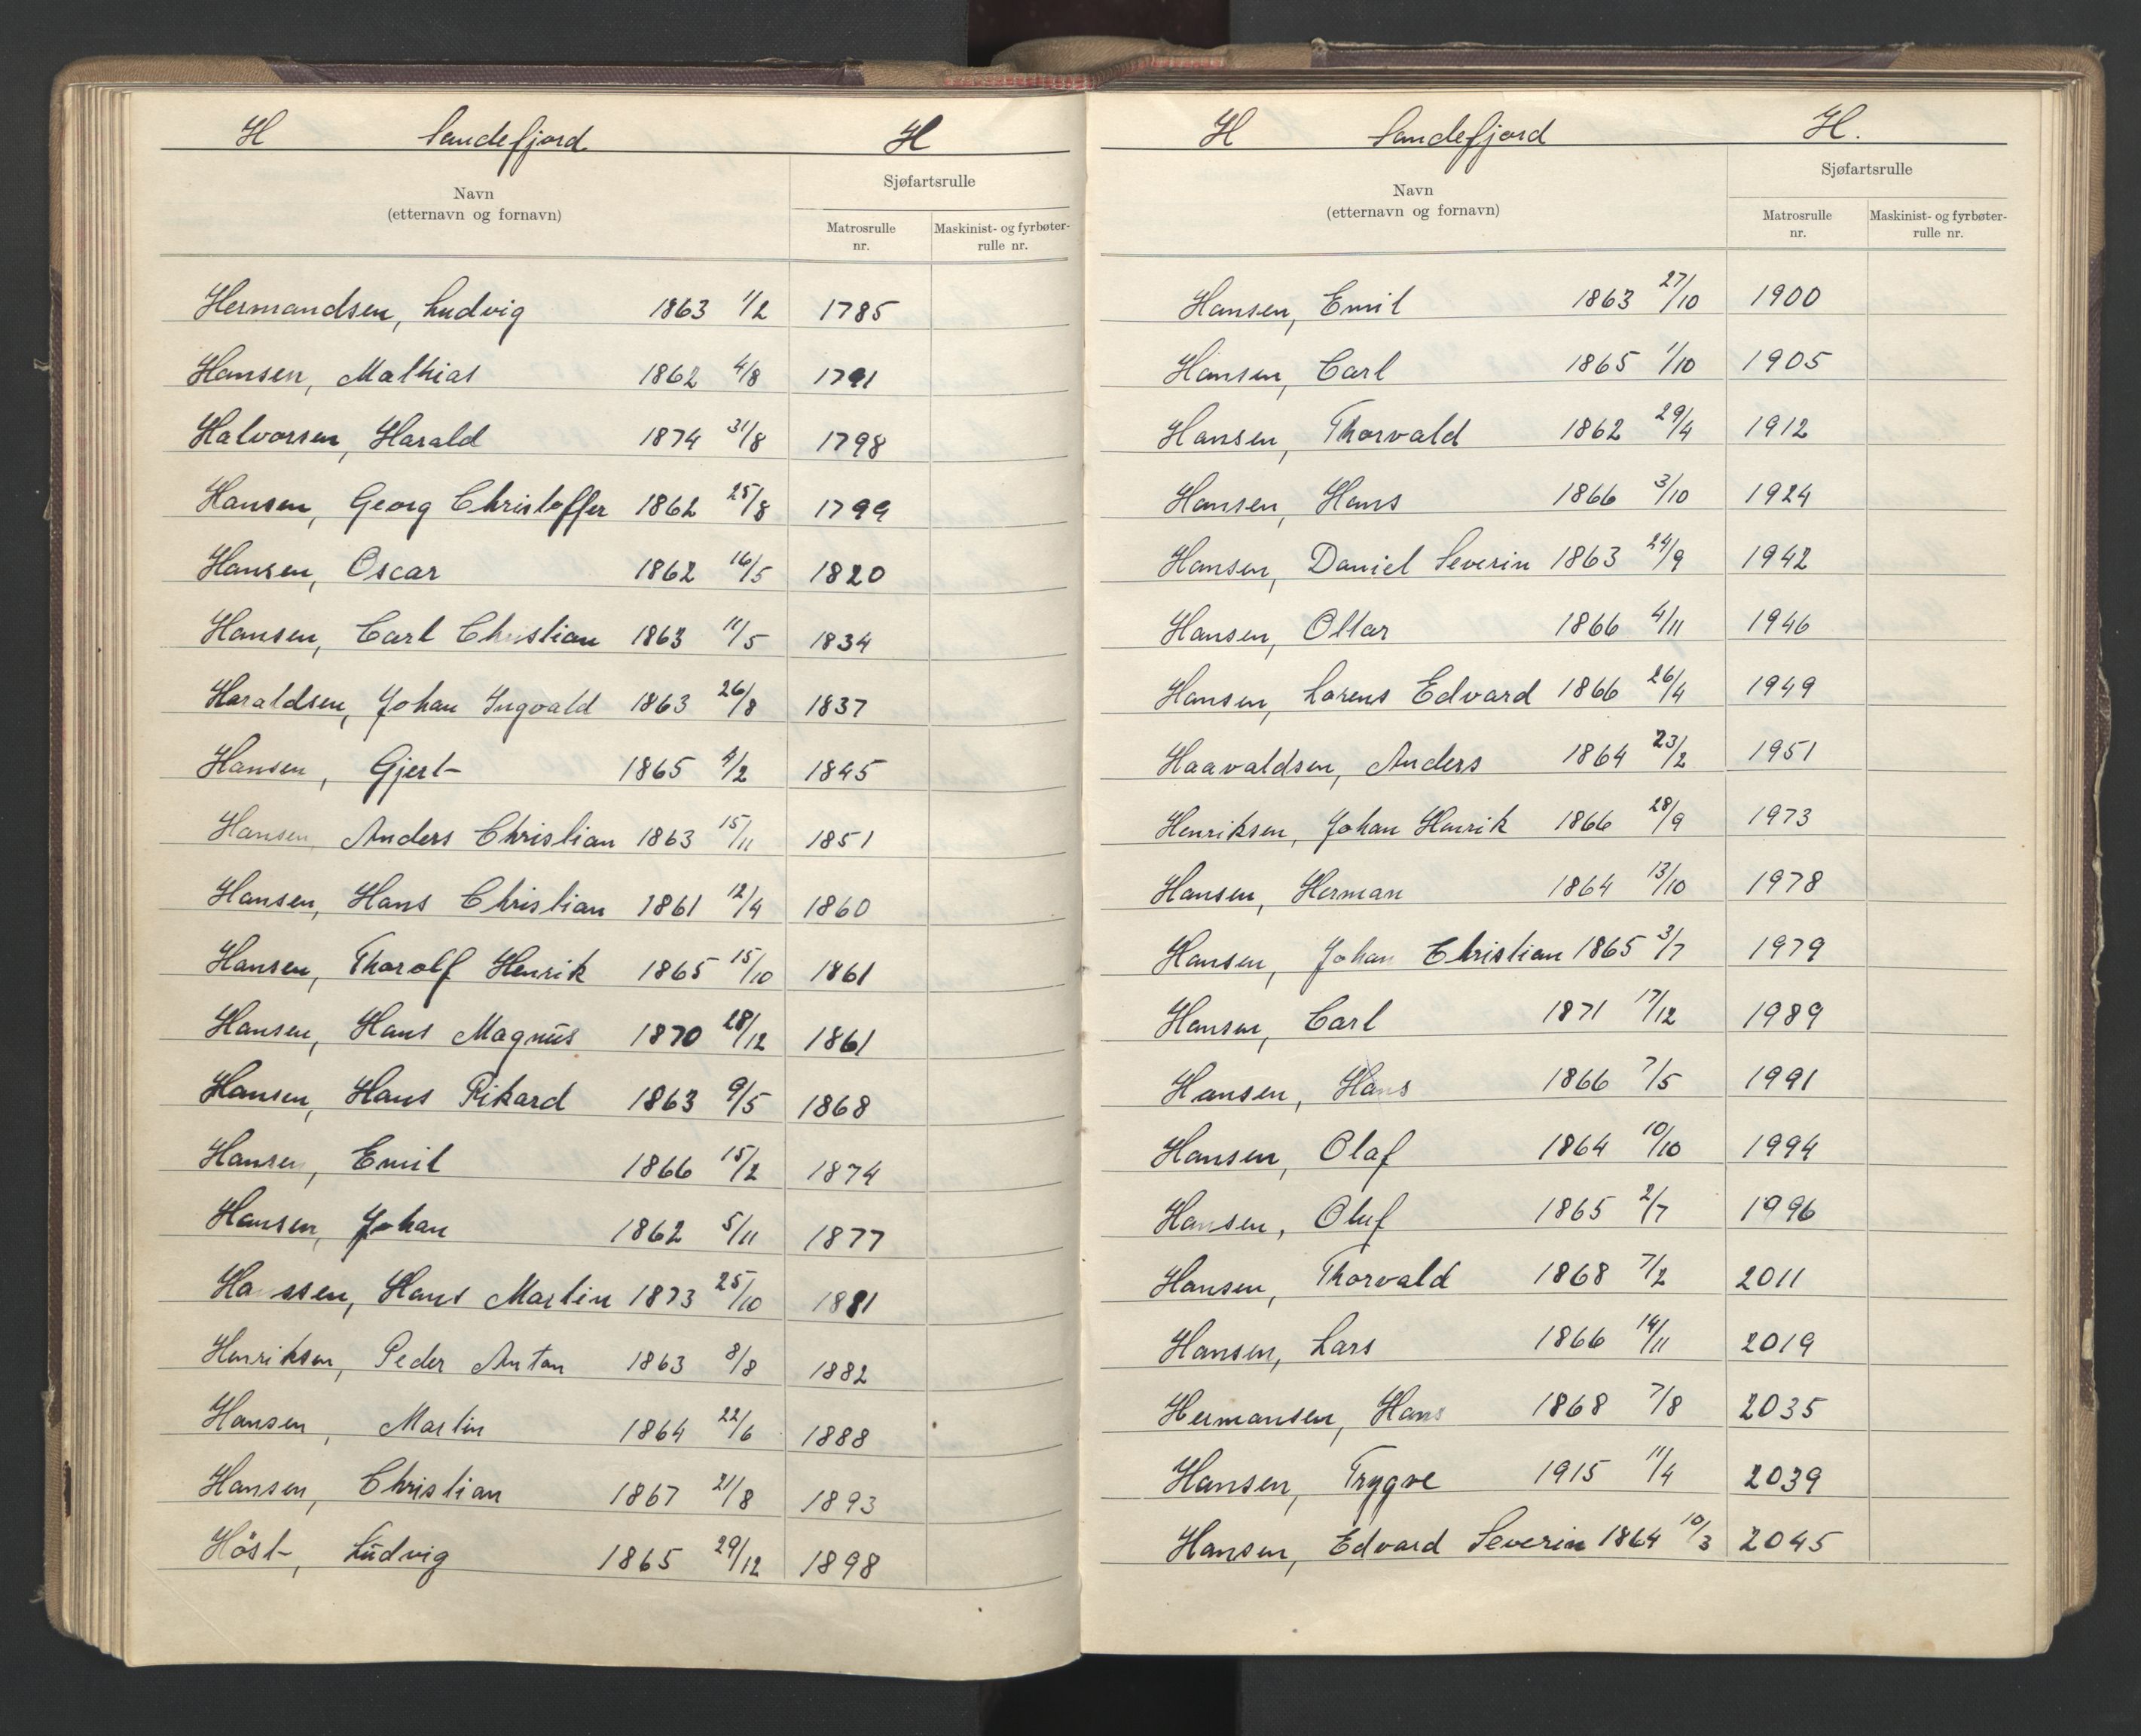 H Sandefjord H
Navn
(etternavn og fornavn)
Sjøfartsrulle
Matrosrulle
nr.
Maskinist- og fyrbøter-
rulle nr.
Hermandsen, Ludvig 1863 1/2 1785
Hansen, Mathias 1862 4/8 1791
Halvorsen, Harald 1874 31/8 1798
Hansen, Georg Christoffer 1862 25/8 1799
Hansen, Oscar 1862 16/5 1820
Hansen, Carl Christian 1863 11/5 1834
Haraldsen, Johan Ingvald 1863 26/8 1837
Hansen, Gjert 1865 4/2 1845
Hansen, Anders Christian 1863 15/11 1851
Hansen, Hans Christian 1861 12/4 1860
Hansen, Thorolf Henrik 1865 15/10 1861
Hansen, Hans Magnus 1870 28/12 1861
Hansen, Hans Rikard 1863 9/5 1868
Hansen, Emil 1866 15/2 1874
Hansen, Johan 1862 5/11 1877
Hanssen, Hans Martin 1873 25/10 1881
Henriksen, Peder Anton 1863 8/8 1882
Hansen, Martin 1864 22/6 1888
Hansen, Christian 1867 21/8 1893
Höst, Ludvig 1865 29/12 1898
H Sandefjord H.
Navn
(etternavn og fornavn)
Sjøfartsrulle
Matrosrulle
nr.
Maskinist- og fyrbøter-
rulle nr.
Hansen, Emil 1863 27/10 1900
Hansen, Carl 1865 1/10 1905
Hansen, Thorvald 1862 29/4 1912
Hansen, Hans 1866 3/10 1924
Hansen, Daniel Severin 1863 24/9 1942
Hansen, Ottar 1866 4/11 1946
Hansen, Lorens Edvard 1866 26/4 1949
Haavaldsen, Anders 1864 23/2 1951
Henriksen, Johan Henrik 1866 28/9 1973
Hansen, Herman 1864 13/10 1978
Hansen, Johan Christian 1865 3/7 1979
Hansen, Carl 1871 17/12 1989
Hansen, Hans 1866 7/5 1991
Hansen, Olaf 1864 10/10 1994
Hansen, Oluf 1865 2/7 1996
Hansen, Thorvald 1868 7/2 2011
Hansen, Lars 1866 14/11 2019
Hermansen, Hans 1868 7/8 2035
Hansen, Trygve 1915 11/4 2039
Hansen, Edvard Severin 1864 10/3 2045